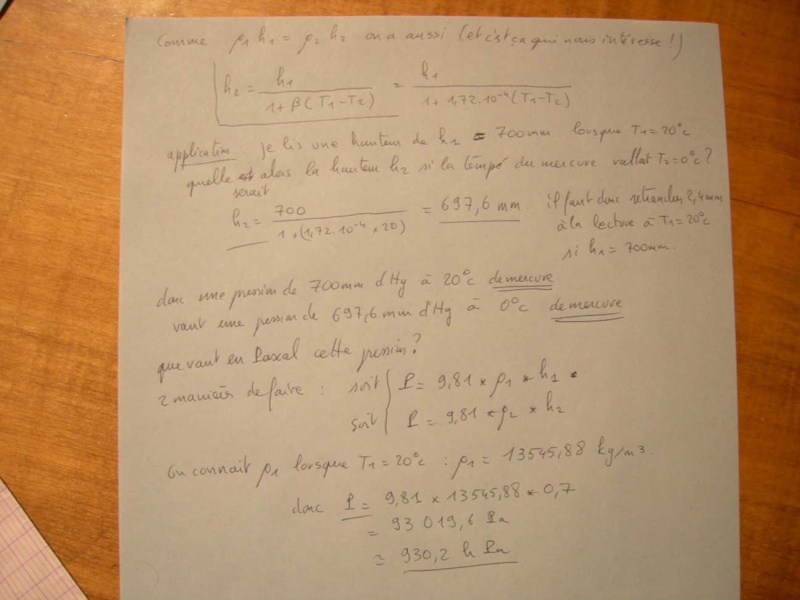 Comme ρ1 h1 = ρ2 h2 on a aussi (et c'est ça qui nous intéresse !)
h2 = h1 / (1 + β(T1-T2)) = h1 / (1 + 1,72.10⁻⁴(T1-T2))
application : je lis une hauteur de h1 = 700mm lorsque T1 = 20°c
quelle serait alors la hauteur h2 si la tempé du mercure vallait T2 = 0°c ?
h2 = 700 / (1 + (1,72.10⁻⁴ * 20)) = 697,6 mm. il faut donc retrancher 2,4mm
à la lecture à T1 = 20°c
si h1 = 700mm.
donc une pression de 700mm d'Hg à 20°c de mercure
vaut une pression de 697,6 mm d'Hg à 0°c de mercure
que vaut en Pascal cette pression ?
2 manières de faire : soit P = 9,81 * ρ1 * h1
soit P = 9,81 * ρ2 * h2
On connait ρ1 lorsque T1 = 20°c : ρ1 = 13545,88 kg/m³.
donc P = 9,81 * 13545,88 * 0,7
= 93 019,6 Pa
≃ 930,2 h Pa